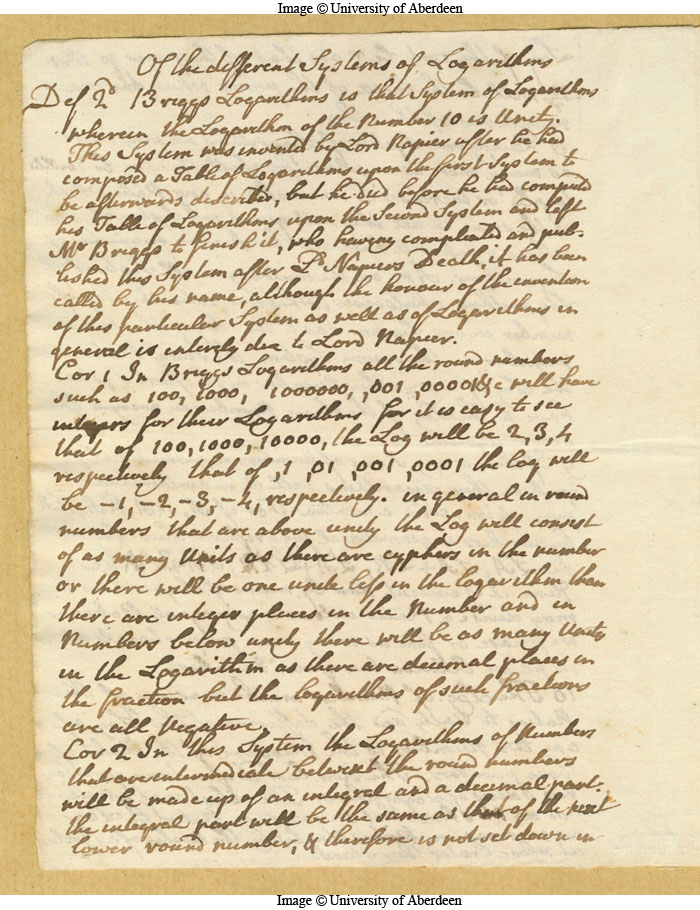 Image © University of Aberdeen
Of the different Systems of Logarithms
Def 2d Briggs Logarithms is that System of Logarithms
wherein the Logarithm of the Number 10 is Unity.
This System was invented by Lord Napier after he had
composed a Table of Logarithms upon the first System to
be afterwards described, but he died before he had computed
his Table of Logarithms upon the Second System and left
Mr Briggs to finish it, who having compleated and pub-
lished this System after Ld Napiers Death, it has been
called by his name, although the honour of the invention
of this particular System as well as of Logarithms in
general is intirely due to Lord Napier.
Cor 1 In Briggs Logarithms all the round numbers
such as 100, 1000, 1000000, ,001 ,00001 &c will have
integers for their Logarithms for it is easy to see
that of 100, 1000, 10000, the Log will be 2, 3, 4
respectively that of ,1 ,01 ,001 ,0001 the log will
be -1, -2, -3, -4, respectively. in general in round
numbers that are above unity the Log will consist
of as many Units as there are cyphers in the number
or there will be one unite less in the logarithm than
there are integer places in the Number and in
Numbers below unity there will be as many Units
in the Logarithm as there are decimal places in
the fraction but the logarithms of such fractions
are all Negative.
Cor 2 In this System the Logarithms of Numbers
that are intermediate betwixt the round numbers
will be made up of an integral and a decimal part.
the integral part will be the same as that of the next
lower round number, & therefore is not set down in
Image © University of Aberdeen